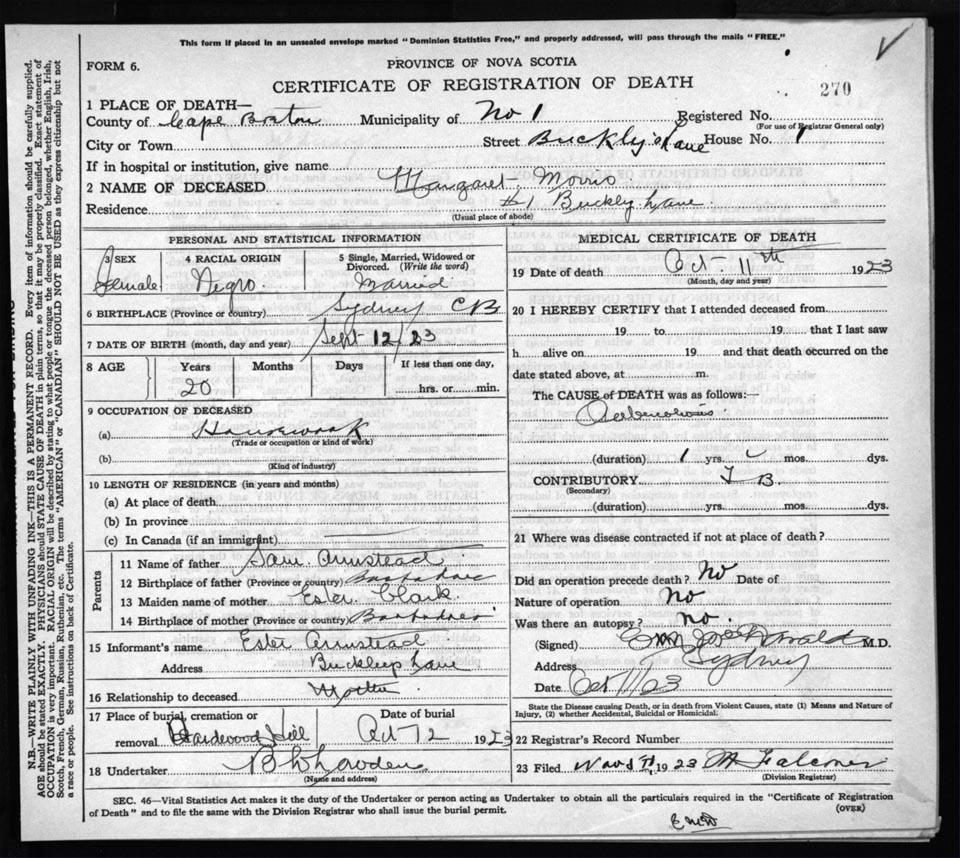 This form if placed in an unsealed envelope marked "Dominion Statistics Free," and properly addressed, will pass through the mails "FREE."
FORM 6.
PROVINCE OF NOVA SCOTIA
CERTIFICATE OF REGISTRATION OF DEATH
270
1 PLACE OF DEATH—
County of Cape Breton Municipality of No 1 Registered No.
(For use of Registrar General only)
City or Town Street Buckly's Lane House No. 1
If in hospital or institution, give name
2 NAME OF DECEASED Margaret Morris
Residence #1 Buckley Lane
(Usual place of abode)
PERSONAL AND STATISTICAL INFORMATION
3 SEX 4 RACIAL ORIGIN 5 Single, Married, Widowed or Divorced. (Write the word)
Female Negro. Married
6 BIRTHPLACE (Province or country) Sydney CB
7 DATE OF BIRTH (month, day and year) Sept 12/23
8 AGE Years Months Days If less than one day,
20 hrs. or min.
9 OCCUPATION OF DECEASED
(a) Housework
(Trade or occupation or kind of work)
(b)
(Kind of industry)
10 LENGTH OF RESIDENCE (in years and months)
(a) At place of death
(b) In province
(c) In Canada (if an immigrant)
Parents
11 Name of father Sam Armstead
12 Birthplace of father (Province or country) Barbadoes
13 Maiden name of mother Ester Clark
14 Birthplace of mother (Province or country) Barbadoes
15 Informant's name Ester Armstead
Address Buckleys Lane
16 Relationship to deceased Mother
17 Place of burial, cremation or Date of burial
removal Hardwood Hill Oct 12 1923
18 Undertaker
(Name and address)
MEDICAL CERTIFICATE OF DEATH
19 Date of death Oct 11th 1923
(Month, day and year)
20 I HEREBY CERTIFY that I attended deceased from
19 to 19 that I last saw
h alive on 19 and that death occurred on the
date stated above, at m.
The CAUSE of DEATH was as follows:
(duration) 1 yrs. mos. dys.
CONTRIBUTORY T B.
(Secondary)
(duration) yrs. mos. dys.
21 Where was disease contracted if not at place of death?
Did an operation precede death? No Date of
Nature of operation No
Was there an autopsy? No.
(Signed) M.D.
Address Sydney
Date Oct 11/23
State the Disease causing Death, or in death from Violent Causes, state (1) Means and Nature of
Injury, (2) whether Accidental, Suicidal or Homicidal.
22 Registrar's Record Number
23 Filed 1923 M Falconer
(Division Registrar)
SEC. 46—Vital Statistics Act makes it the duty of the Undertaker or person acting as Undertaker to obtain all the particulars required in the "Certificate of Registration
of Death" and to file the same with the Division Registrar who shall issue the burial permit. (OVER)
N.B.—WRITE PLAINLY WITH UNFADING INK—THIS IS A PERMANENT RECORD. Every item of information should be carefully supplied.
AGE should be stated EXACTLY. PHYSICIANS should STATE CAUSE OF DEATH in plain terms, so that it may be properly classified. Exact statement of
OCCUPATION is very important. RACIAL ORIGIN will be described by stating to what people or tongue the deceased person belonged, whether English, Irish,
Scotch, French, German, Russian, Ruthenian, etc. The terms "AMERICAN" or "CANADIAN" SHOULD NOT BE USED as they express citizenship but not
a race or people. See instructions on back of Certificate.